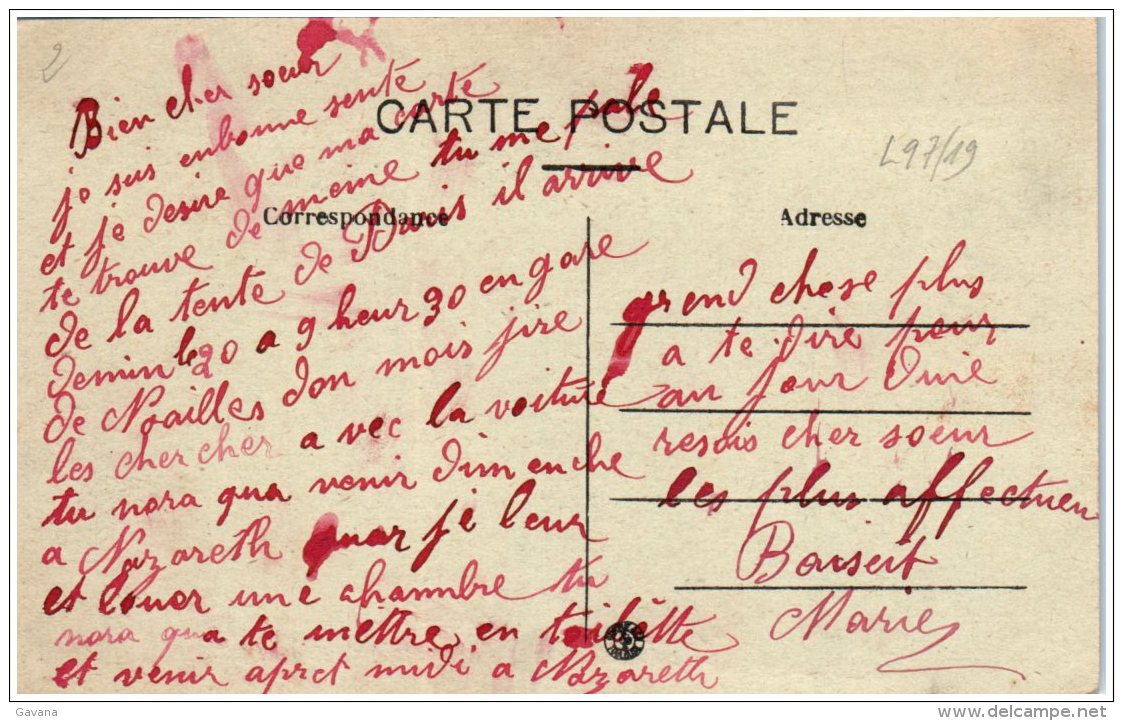 2
Bien cher soeur
CARTE POSTALE
L97/19
je suis en bonne sente
et je desire que ma carte
te trouve de meime tu me parle
Correspondance
de la tente de Paris il arrive
demin le 20 a 9 heur 30 en gare
de Noailles don mois jire
les chercher a vec la voiture
tu nora qua venir dimenche
a Nazareth quar je leur
et louer une chammbre tu
nora qua te mettre en toilette
et venir apret midi a Nazareth
Adresse
grend chose plus
a te dire pour
au jour duie
resois cher soeur
les plus affectuen
Baiseit
Marie
Gavana
delcampe.net